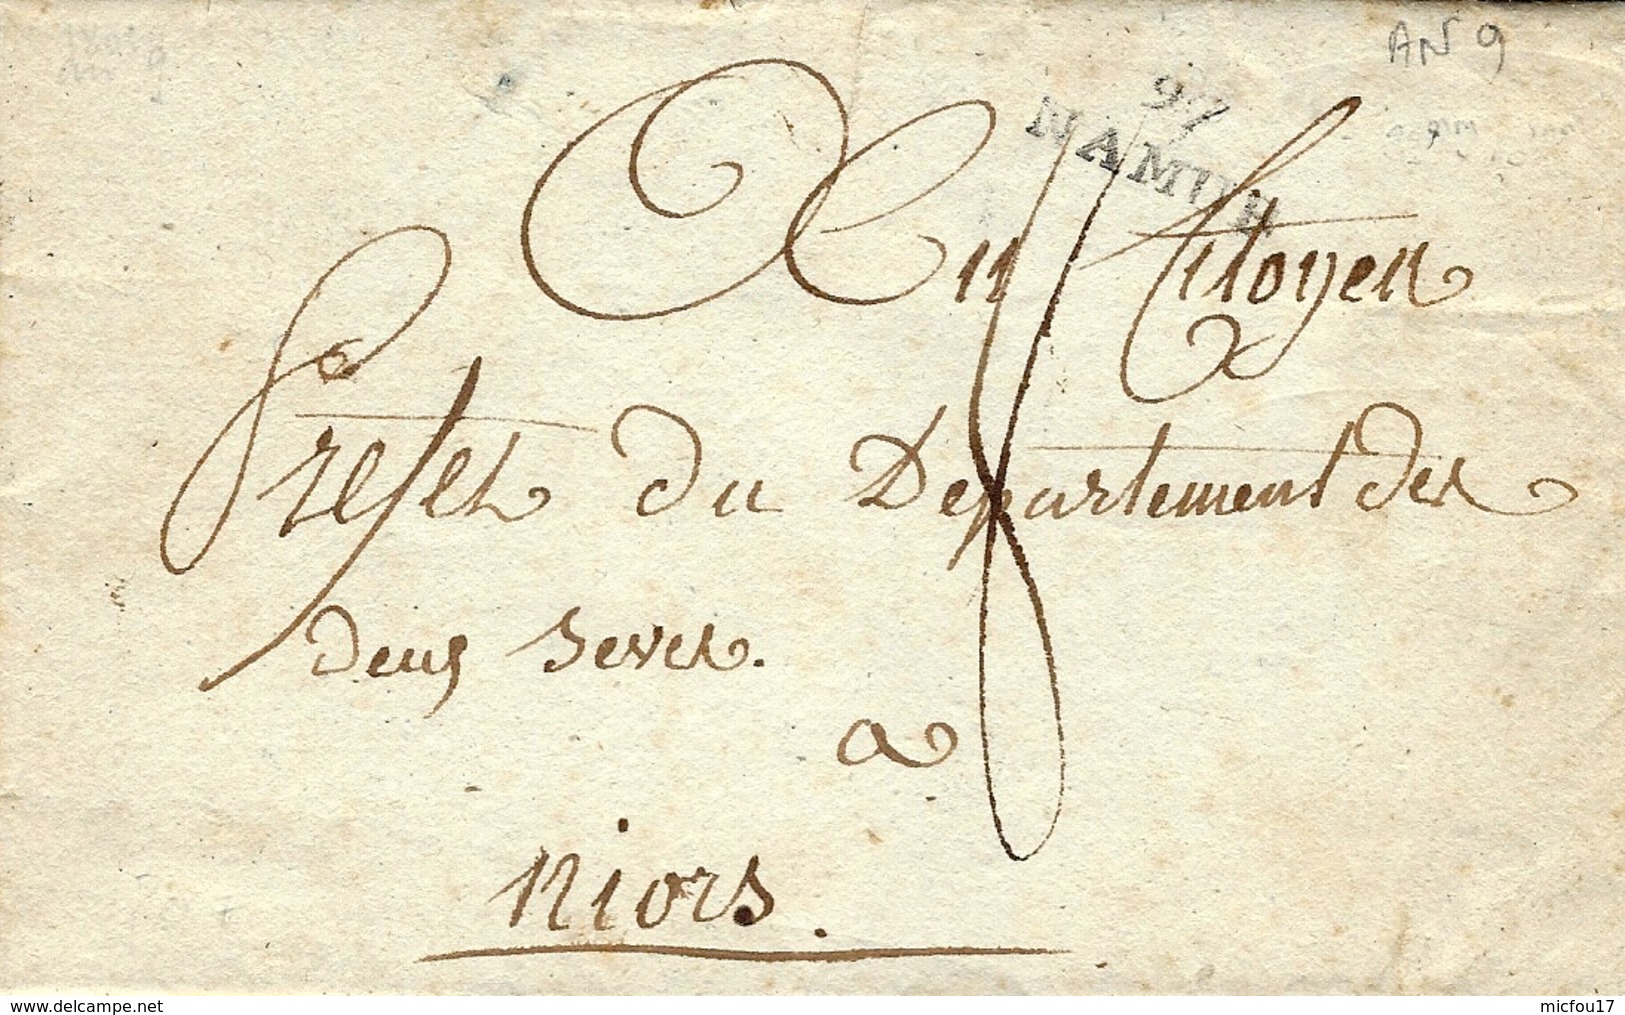 AN 9
an 9
97
NAMUR
Au Citoyen
Préfet du Département des
deux Sevres.
a
Niors.
www.delcampe.net
micfou17